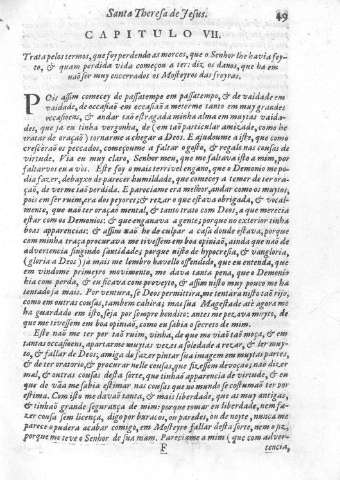 Santa Theresa de Jesus. 49
CAPITULO VII.
Trata pelos termos, que foy perdendo as merces, que o Senhor lhe havia fey-
to, & quam perdida vida começou a ter: diz os danos, que ha em
naõ ser muy encerrados os Mosteyros das freyras.
POis assim comecey de passatempo em passatempo, & de vaidade em
vaidade, de occasiaõ em occasiaõ a meterme tanto em muy grandes
occasioens, & andar taõ estragada minha alma em muytas vaida-
des, que ja eu tinha vergonha, de (em taõ particular amizade, como he
tratar de oraçaõ) tornarme a chegar a Deos. E ajudoume a isto, que como
crescéraõ os peccados, começoume a faltar o gosto, & regalo nas cousas de
virtude. Via eu muy claro, Senhor meu, que me faltava isto a mim, por
faltarvos eu a vòs. Este foy o mais terrivel engano, que o Demonio me po-
dia fazer, debayxo de parecer humildade, que comecey a temer de ter ora-
çaõ, de verme taõ perdida. E pareciame era melhor, andar como os muytos,
pois em ser ruim, era dos peyores; & rezar o que estava obrigada, & vocal-
mente, que naõ ter oraçaõ mental, & tanto trato com Deos, a que merecia
estar com os Demonios: & que enganava a gente; porque no exterior tinha
boas apparencias: & assim naõ he de culpar a casa donde estava, porque
com minha traça procurava me tivessem em boa opiniaõ, ainda que naõ de
advertencia fingindo santidade; porque nisto de hypocresia, & vangloria,
(gloria a Deos) ja mais me lembro havello offendido, que eu entenda, que
em vindome primeyro movimento, me dava tanta pena, que o Demonio
hia com perda, & eu ficava com proveyto, & assim nisto muy pouco me ha
tentado ja mais. Por ventura, se Deos permittira, me tentara nisto taõ rijo,
como em outras cousas, tambem cahira; mas sua Magestade atè agora me
ha guardado em isto, seja por sempre bendito: antes me pezava muyto, de
que me tivessem em boa opiniaõ, como eu sabia o secreto de mim.
Este naõ me ter por taõ ruim, vinha, de que me viaõ taõ moça, & em
tantas occasioens, apartarme muytas vezes a soledade a rezar, & ler muy-
to, & fallar de Deos; amiga de fazer pintar sua imagem em muytas partes,
& de ter oratorio, & procurar nelle cousas, que fizessem devoçaõ; naõ dizer
mal, & outras cousas desta sorte, que tinhaõ apparencia de virtude, & eu
que de vãa me sabia estimar nas cousas que no mundo se costumaõ ter por
estima. Com isto me davaõ tanta, & mais liberdade, que as muy antigas,
& tinhaõ grande segurança de mim: porque tomar eu liberdade, nem fa-
zer cousa sem licença, digo por buracos, ou paredes, ou de noyte, nunca me
parece o pudera acabar comigo, em Mosteyro fallar desta sorte, nem o fiz,
porque me teve o Senhor de sua maõ. Pareciame a mim (que com adver-
F tencia,